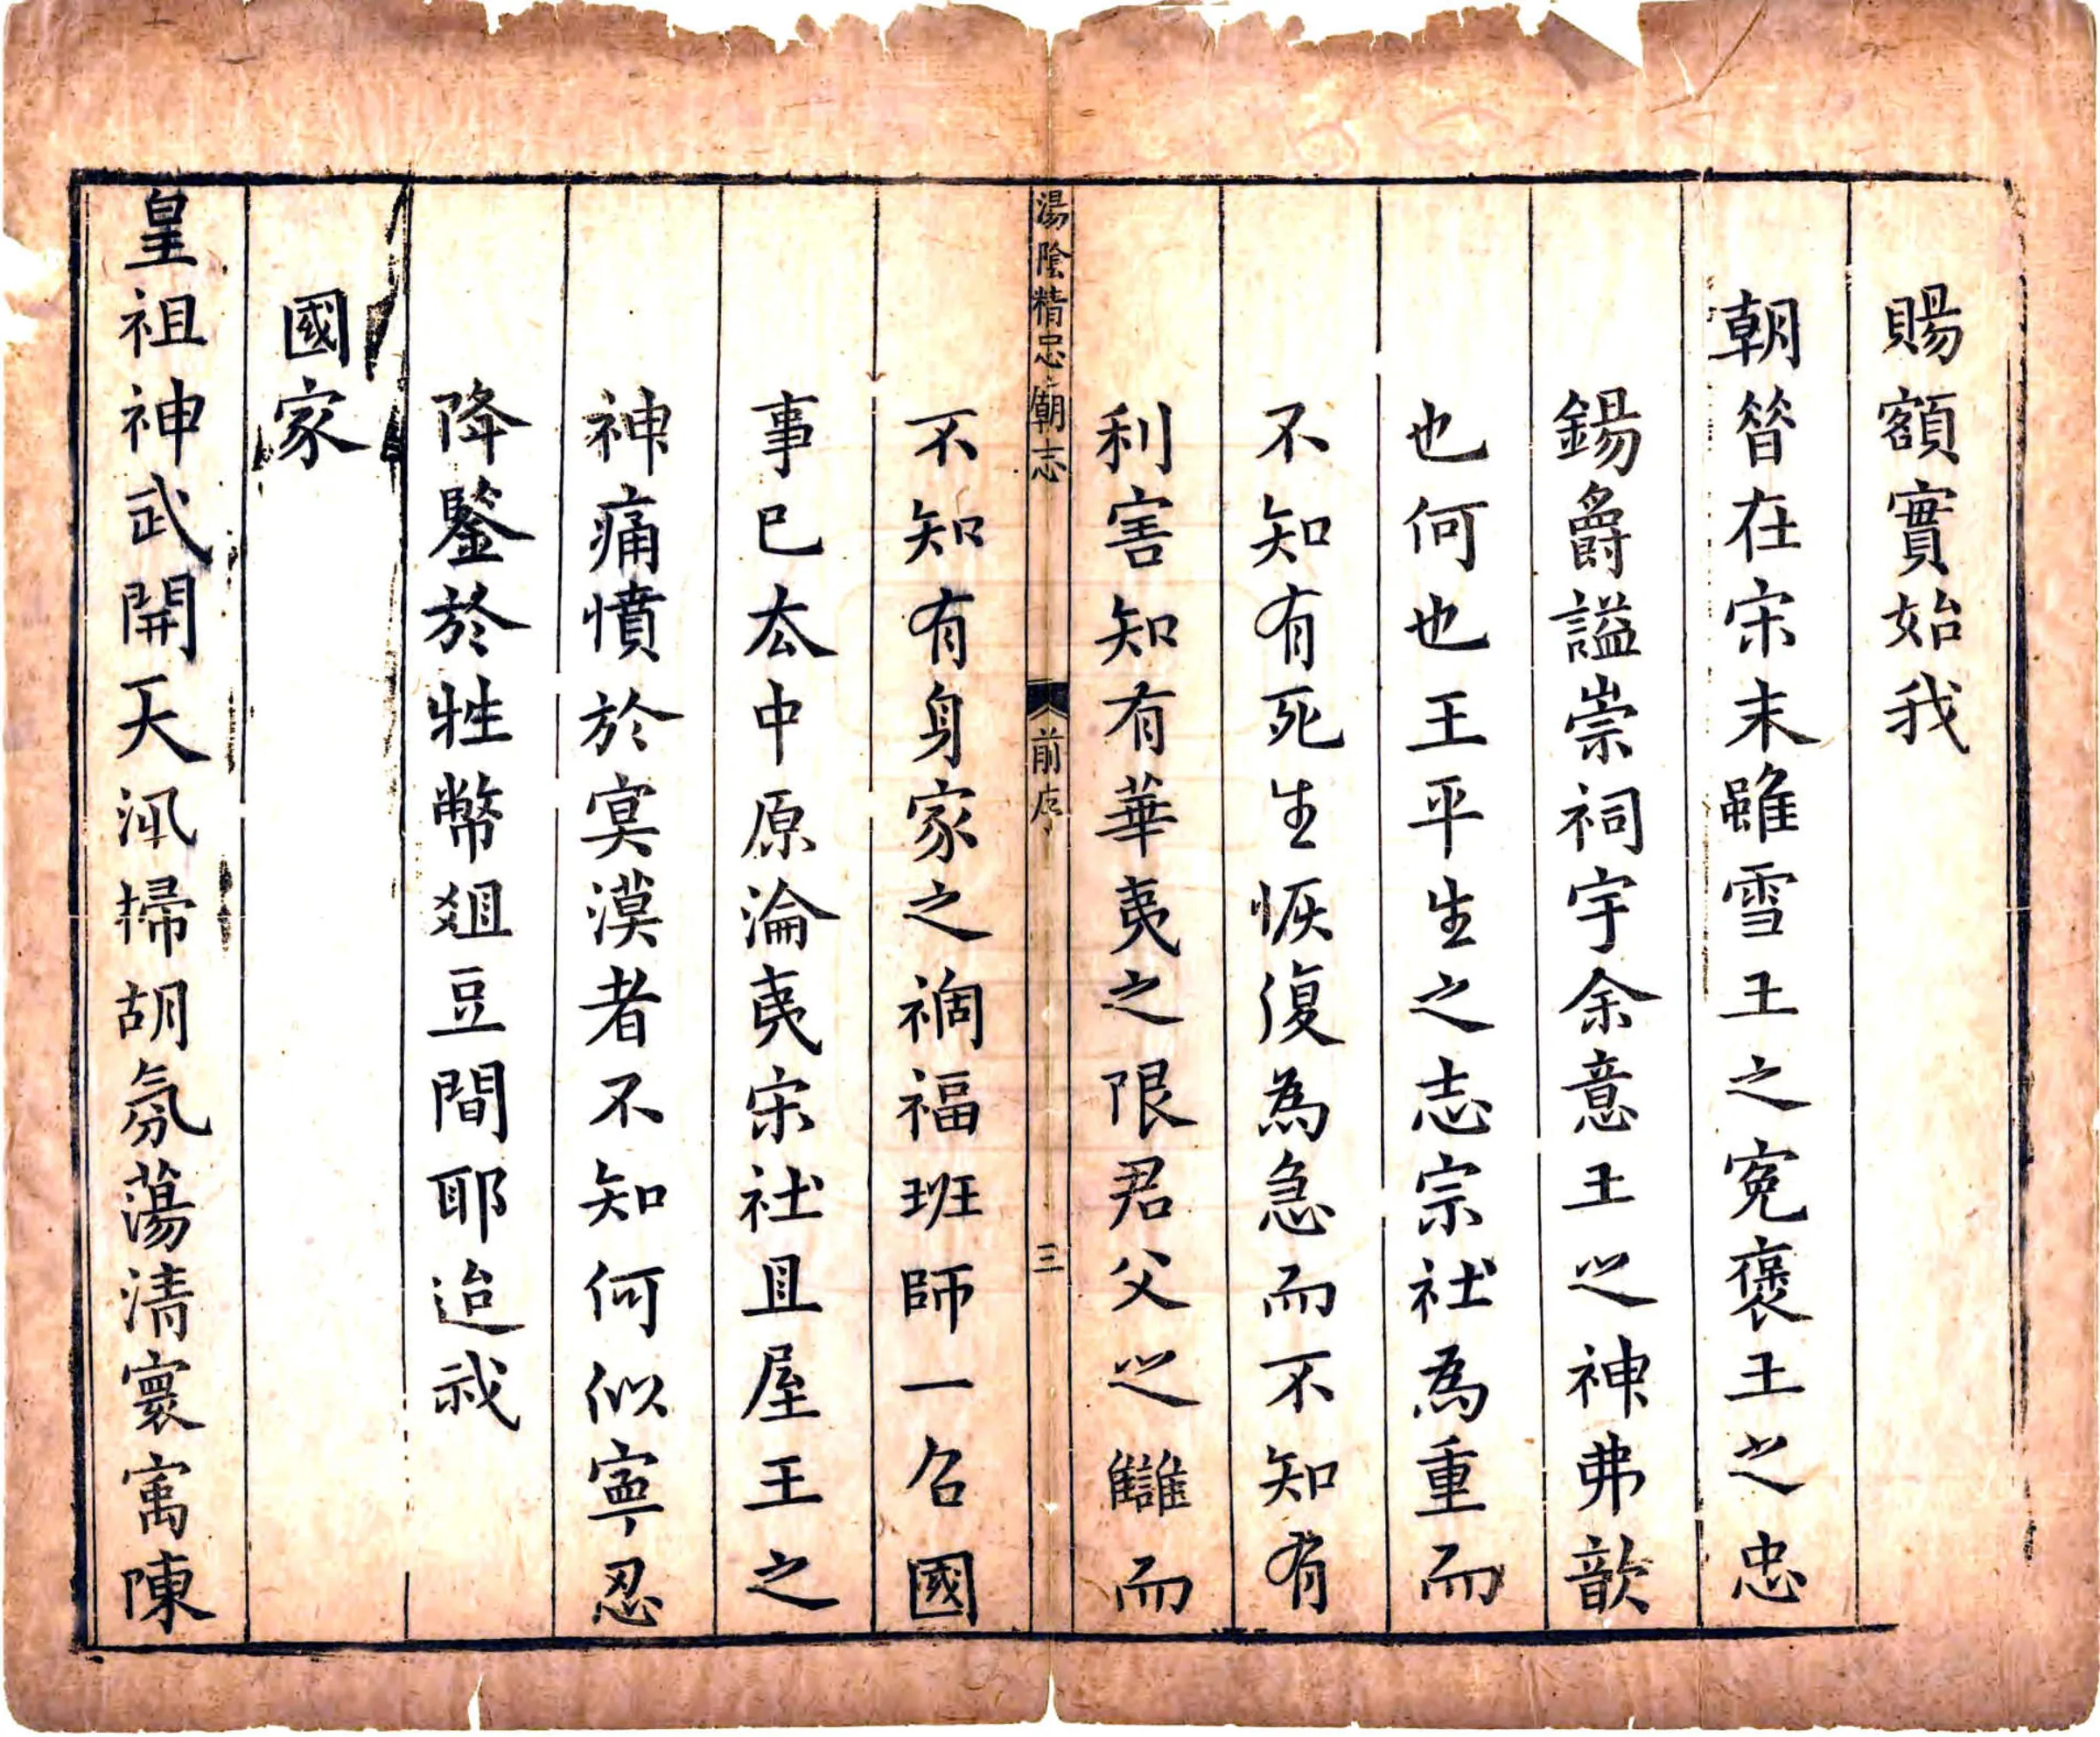 賜額實始我
朝昝在宋末雖雪王之寃褒王之忠
錫爵謚崇祠宇余意王之神弗歆
也何也王平生之志宗社為重而
不知有死生恢復為急而不知有
利害知有華夷之限君父之讎而
湯陰精忠廟志
前序
三
不知有身家之禍福班師一召國
事已厺中原淪夷宋社且屋王之
神痛憤於寞漠者不知何似寧忍
降鑒於牲幣爼豆間耶迨我
國家
皇祖神武開天汛掃胡氛蕩清寰㝢陳